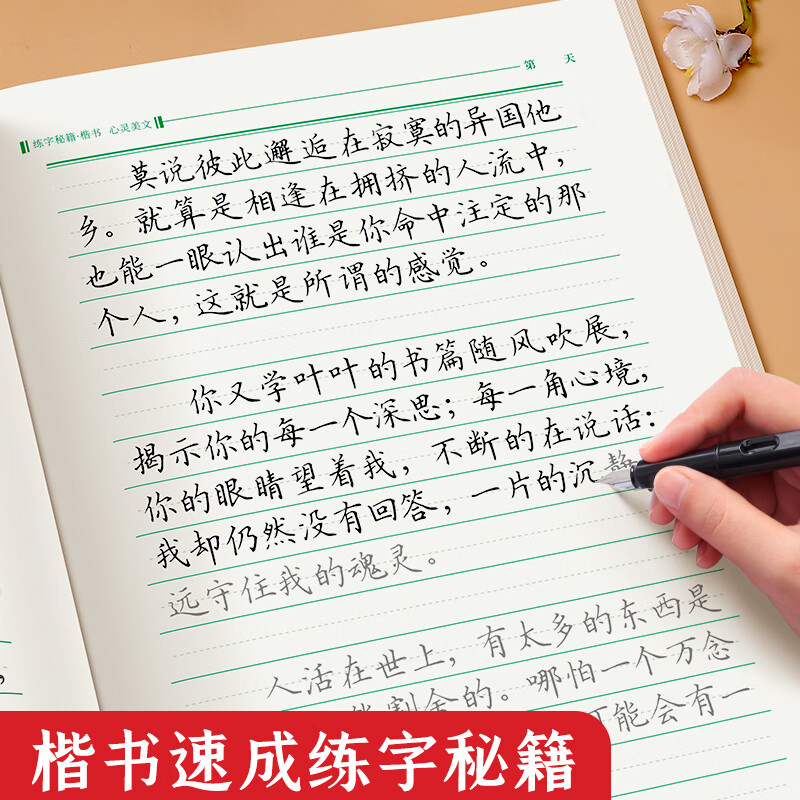 第 天
练字秘籍·楷书 心灵美文
莫说彼此邂逅在寂寞的异国他
乡。就算是相逢在拥挤的人流中，
也能一眼认出谁是你命中注定的那
个人，这就是所谓的感觉。
你又学叶叶的书篇随风吹展，
揭示你的每一个深思；每一角心境，
你的眼睛望着我，不断的在说话：
我却仍然没有回答，一片的沉静
远守住我的魂灵。
人活在世上，有太多的东西是
割舍的。哪怕一个万念
可能会有一
楷书速成练字秘籍